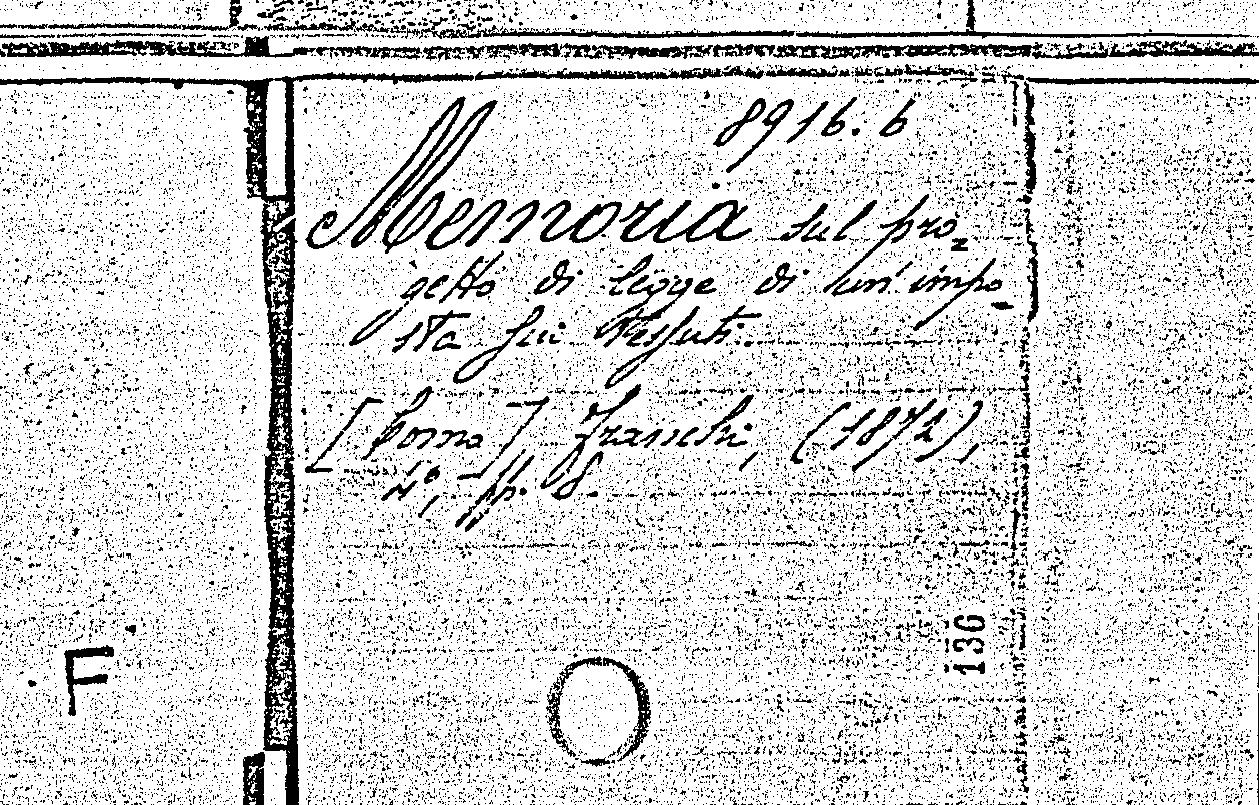 8916.6
Memoria sul pro=
getto di legge di un'impo
sta sui Tessuti.
[Como] Franchi, (1872),
4°, pp. 8.
136
F